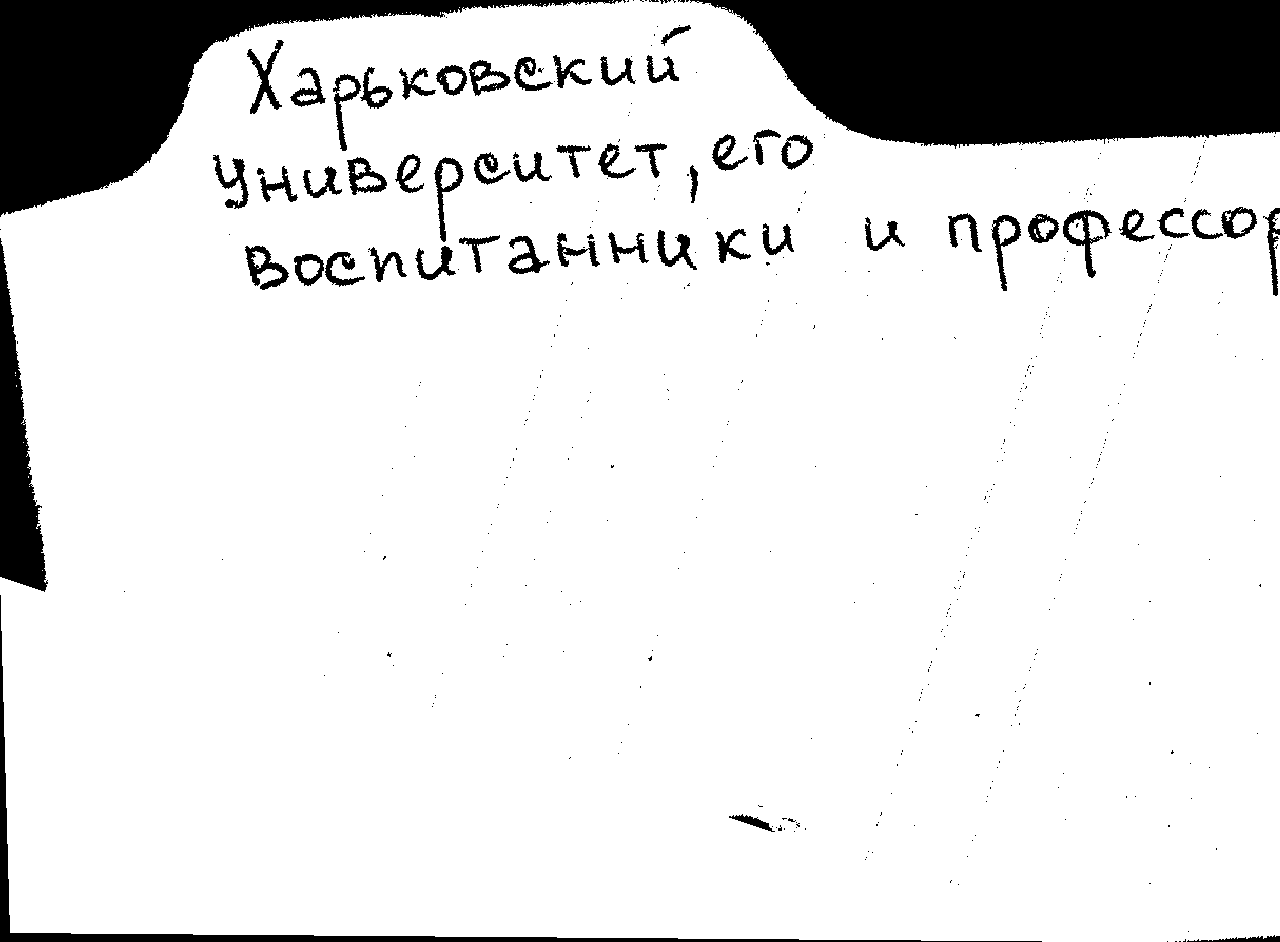 Харьковский
университет, его
воспитанники и профессор